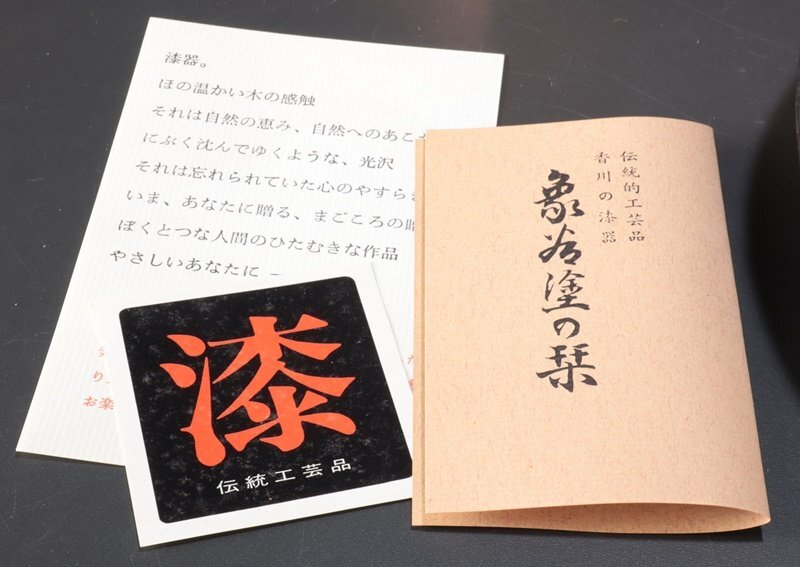 漆器。
ほの温かい木の感触
それは自然の恵み、自然へのあこ
にぶく沈んでゆくような、光沢
それは忘れられていた心のやすら
いま、あなたに贈る、まごころの贈
ぼくとつな人間のひたむきな作品
やさしいあなたに ―
り
お楽
漆
伝統工芸品
伝統的工芸品
香川の漆器
象谷塗の栞